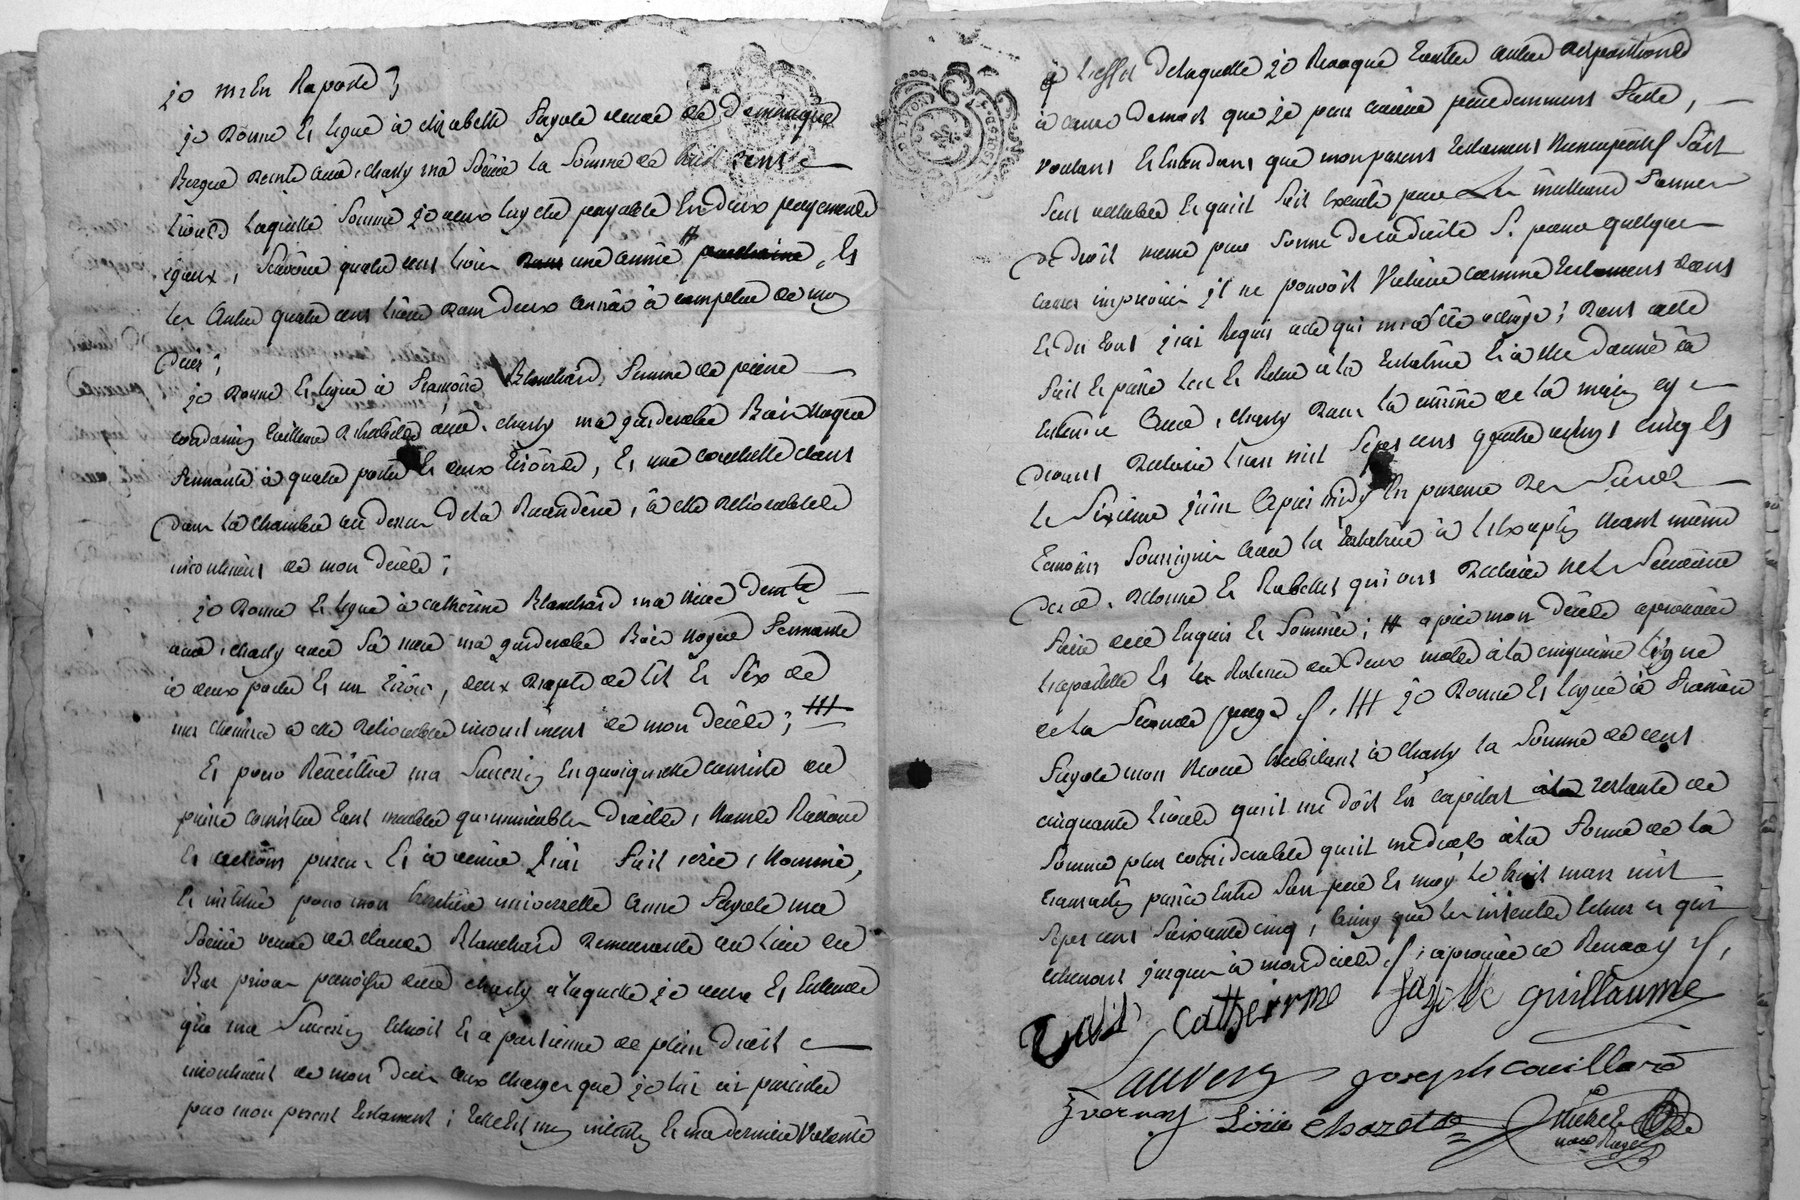 je m'en Raporte ;
je donne et legue à elizabeth fayole veuve de dominique
Bergue dud. charly ma soeur la somme de huit cents
livres laquelle somme je veux luy etre payable en deux payements
egaux, scavoir quatre cens livres dans une année prochaine, et
les autres quatre cens livres dans deux années à compter de mon
deces ;
je donne et legue à françoise Blanchard femme de pierre
condamin tailleur d'habits aud. charly ma garderobe Bois noyer
fermante à quatre portes et deux tiroirs, et une couchette dans
dans la chambre au dessus de la Buanderie, à elle delivrables
incontinent de mon décés ;
je donne et legue à catherine Blanchard ma niece demte
aud. charly avec sa mere ma garderobe Bois noyer fermante
à deux portes et un tiroir, deux draps de lit et six de
mes chemises à elle delivrables incontinent de mon décés ; ###
Et pour Résidu ma succession en quoiqu'elle consiste ou
puisse consister tant meubles qu'immeubles droits, noms Raisons
et actions presens et à venir j'ai fait, créé, nommé,
et institué pour mon heritiere universelle anne fayole ma
soeur veuve de claude Blanchard demeurante au lieu du
Bas privas paroisse dud. charly à laquelle je veux et entends
que ma succession echoit et apartienne de plein droit
incontinent de mon deces aux charges que je lui ai precedées
par mon present testament ; telle est mon intention et ma derniere volonté
à l'effet de laquelle je Revoque toutes autres dispositions
à cause de mort que je puis avoir precedemment faites,
voulant et entendant que mon present testament nuncupatif soit
seul valable et qu'il soit executé par les meilleures formes
de droit meme par forme de codicile si pour quelques
causes imprévues il ne pouvoit valoir comme testament dont
et du tout j'ai Requis acte qui m'a été octroyé ; dont acte
fait et passé lu et Relu à la testatrice et à elle donné à
entendre aud. charly dans la cuisine de la maison
devant declarée l'an mil sept cens quatre vingt cinq et
le sixieme juin après midy en presence des sieurs
temoins soussignés avec la testatrice à l'exception
desd. delorme et Rabellet qui ont declaré ne le scavoir
faire de ce enquis et sommés ; # apres mon décés approuvée
l'apostille et la Rature de deux mots à la cinquieme ligne
de la seconde page /. ### je donne et legue à françois
fayole mon neveu habitant à charly la somme de cent
cinquante livres qu'il me doit en capital restante de
somme plus considerable qu'il me devoit à la forme de la
transaction passée entre son pere et moy le huit mars mil
sept cens soixante cinq, ainsy que les interets echus et qui
echeront jusques à mon décés /. approuvée ce Renvoy /.
Catherinne guillaume
Lauvery joseph couillard
Vernay Loüis chazette michel